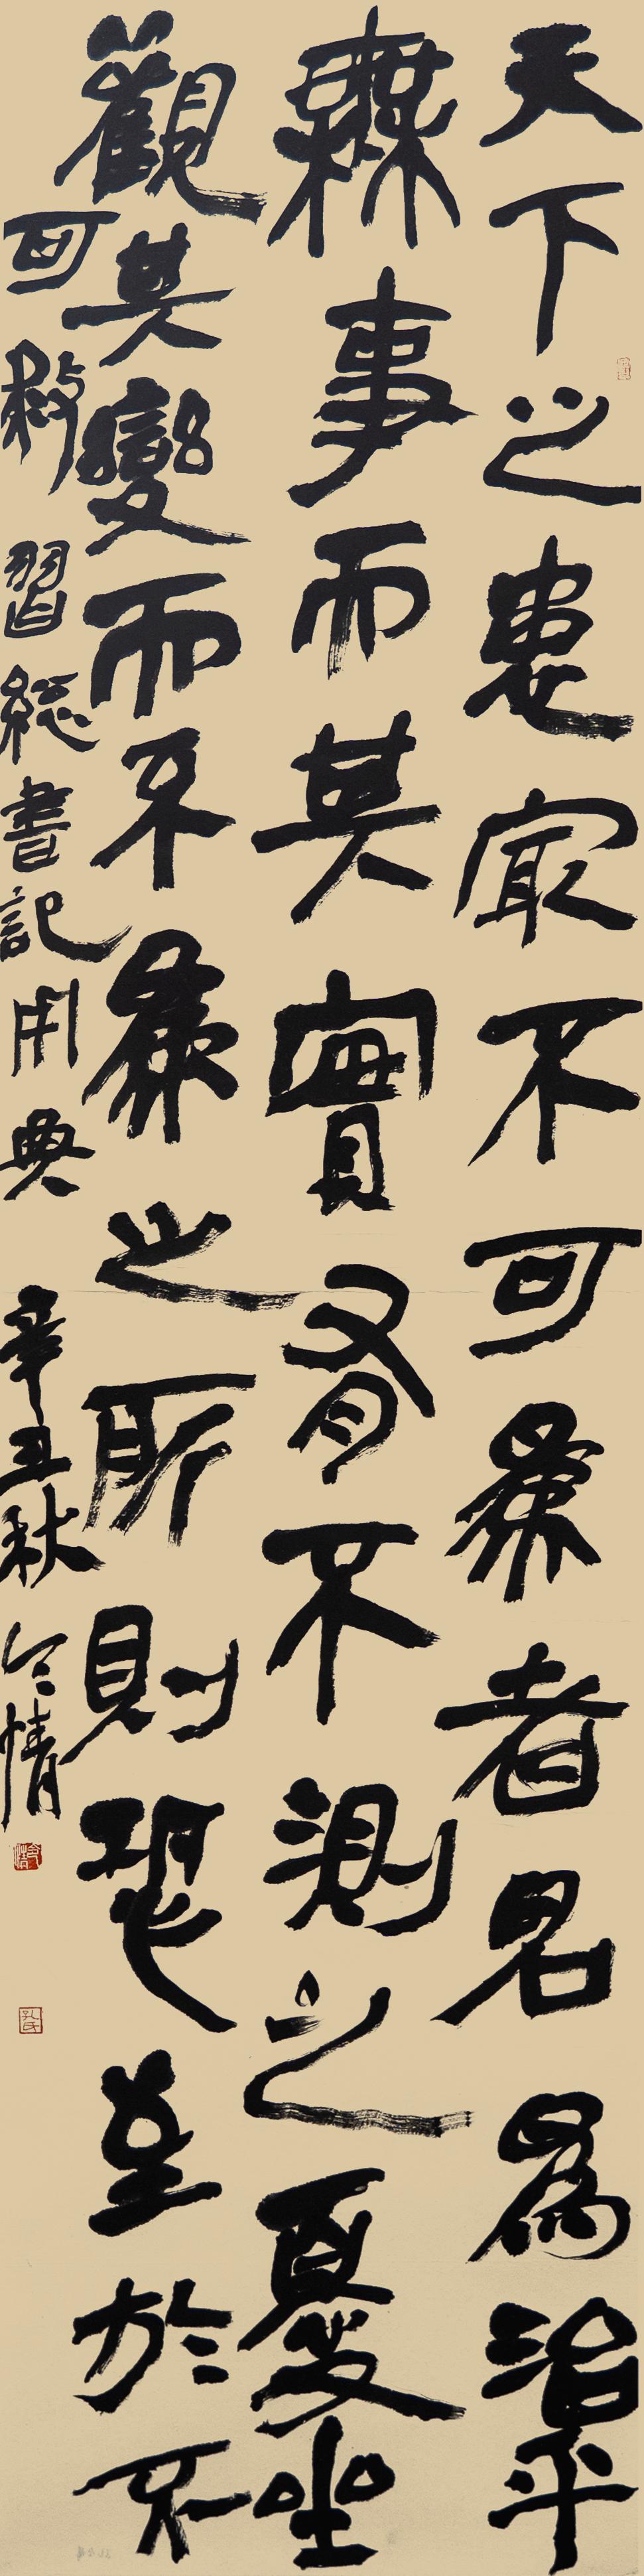 天下之患冣不可為者名為治平
無事而其實有不測之憂坐
觀其變而不為之所則恐至於不
可救 習總書記用典 辛丑秋 令情
孔氏